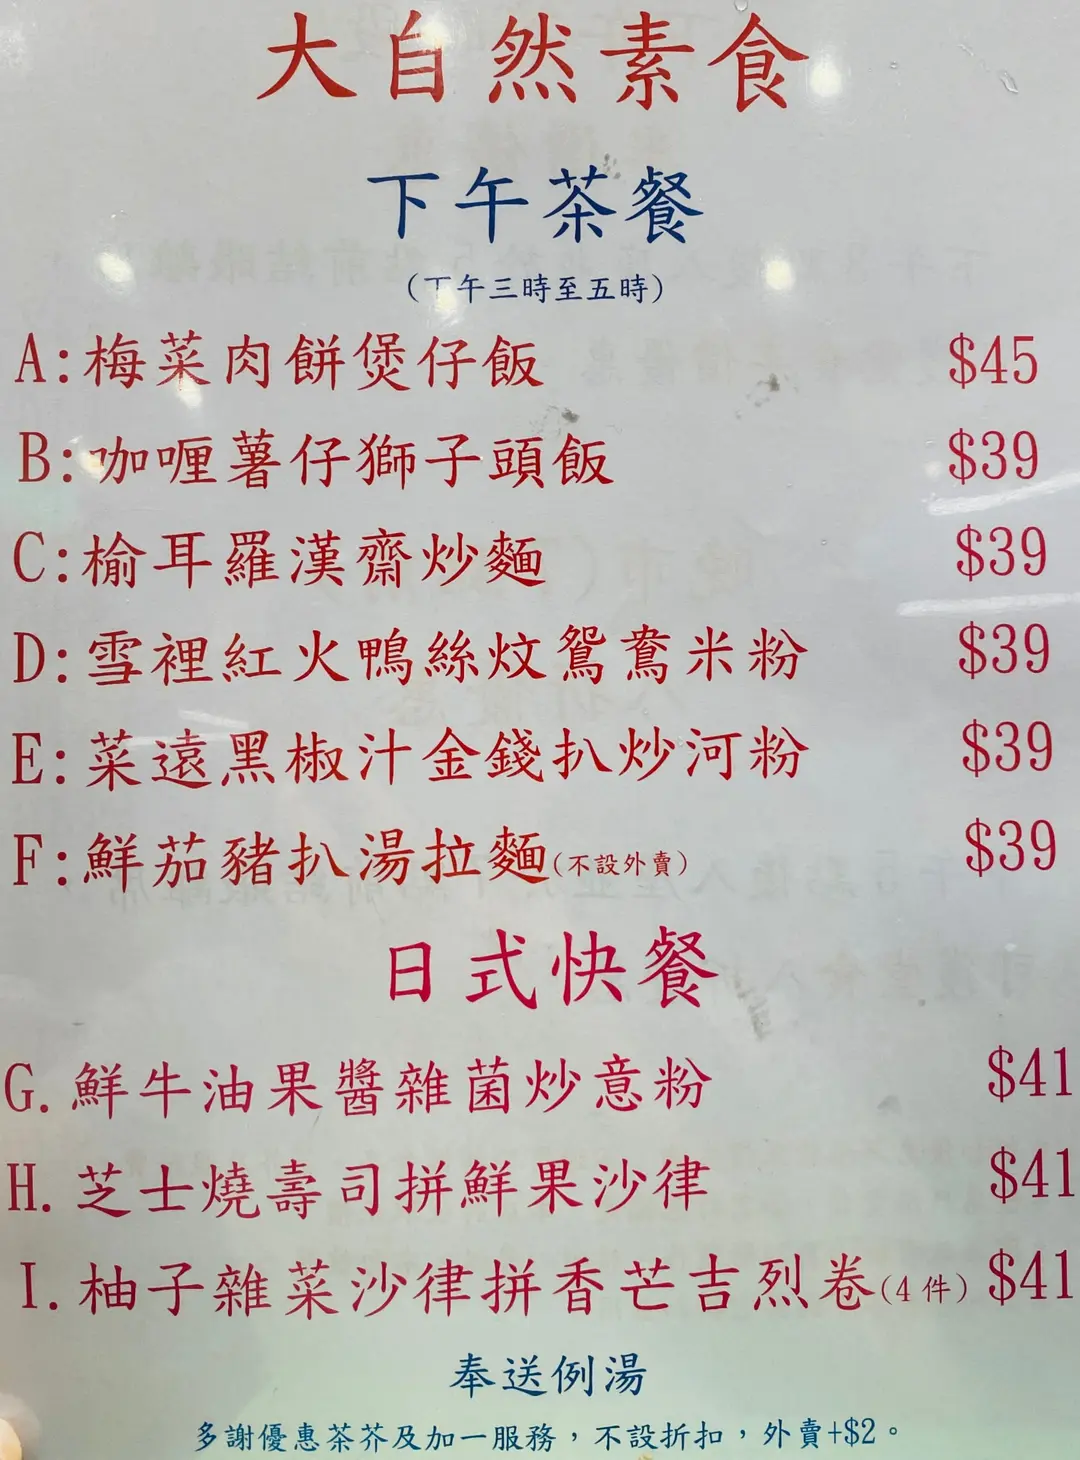 大自然素食
下午茶餐
(下午三時至五時)
A:梅菜肉餅煲仔飯 $45
B:咖喱薯仔獅子頭飯 $39
C:榆耳羅漢齋炒麵 $39
D:雪裡紅火鴨絲炆鴛鴦米粉 $39
E:菜遠黑椒汁金錢扒炒河粉 $39
F:鮮茄豬扒湯拉麵(不設外賣) $39
日式快餐
G.鮮牛油果醬雜菌炒意粉 $41
H.芝士燒壽司拼鮮果沙律 $41
I.柚子雜菜沙律拼香芒吉烈卷(4件) $41
奉送例湯
多謝優惠茶芥及加一服務，不設折扣，外賣+$2。